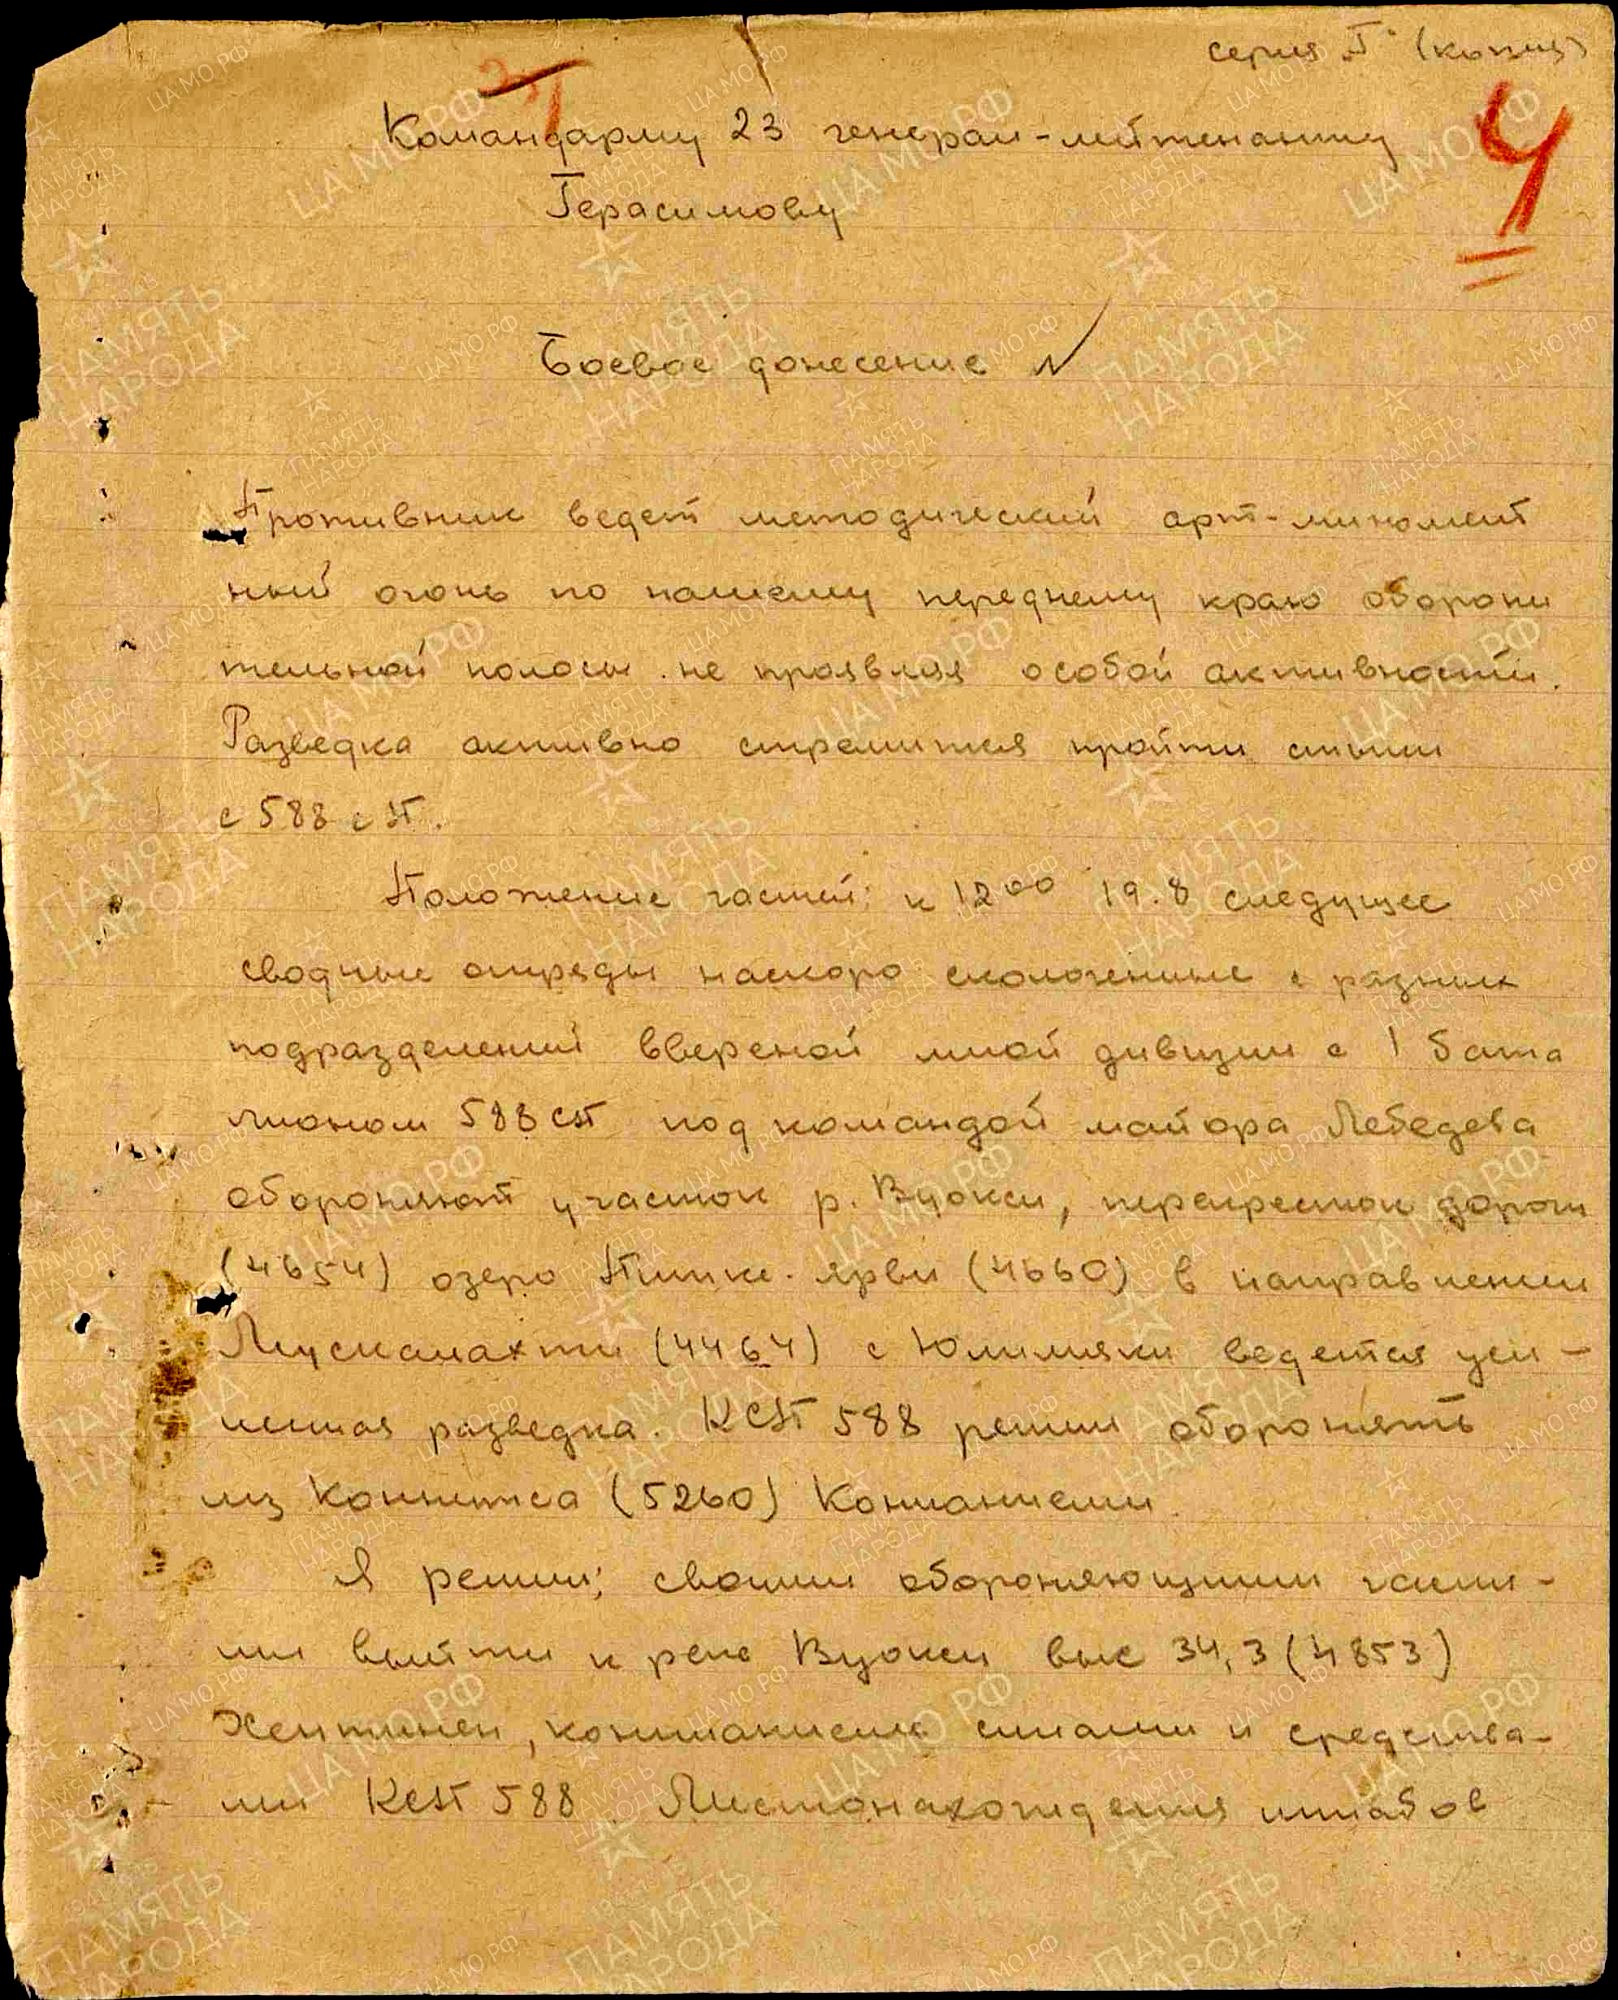 серия Г (копия)
Командарму 23 генерал-лейтенанту
Герасимову
4
Боевое донесение №
Противник ведет методический арт-миномет
ный огонь по нашему переднему краю оборони
тельной полосы. не проявляя особой активности.
Разведка активно стремится пройти стыки
с 588 сп.
Положение частей: к 12⁰⁰ 19.8 следущее
сводные отряды наскоро сколоченные с разных
подразделений вверенной мной дивизии с 1 бата
лионом 588 сп под командой майора Лебедева
обороняют участок р. Вуокси, перекресток дорог
(4654) озеро ярви (4660) в направлении
(4464) с Юлимяки ведется уси-
ленная разведка. Ксп 588 решил оборонять
(5260) Конианиеми
Я решил; своими обороняющими частя-
ми выйти к реке Вуокси выс 34,3 (4853)
Хентинен, кониманиеми силами и средства-
ми Ксп 588. Местонахождения штабов